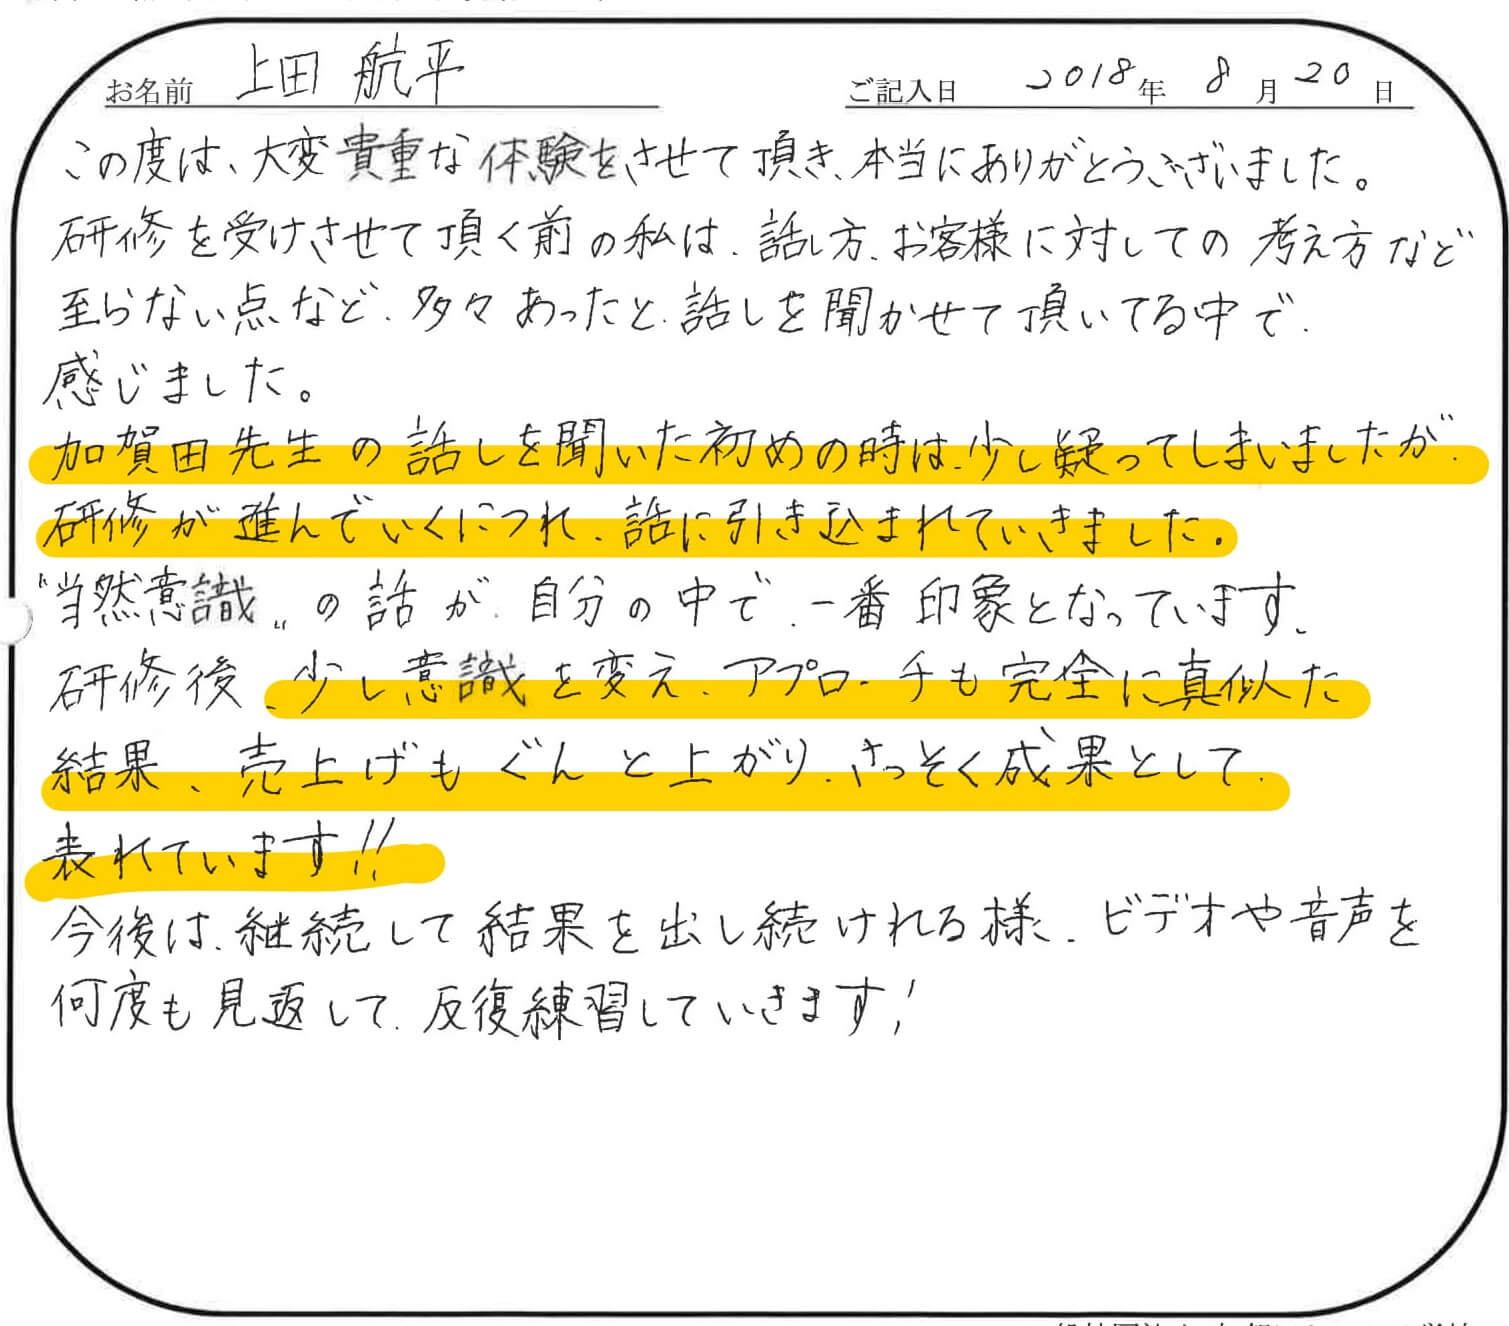 お名前 上田 航平 ご記入日 2018年 8月20日
この度は、大変貴重な体験をさせて頂き、本当にありがとうございました。
研修を受けさせて頂く前の私は、話し方、お客様に対しての考え方など
至らない点など、多々あったと、話しを聞かせて頂いてる中で、
感じました。
加賀田先生の話しを聞いた初めの時は、少し疑ってしまいましたが、
研修が進んでいくにつれ、話に引き込まれていきました。
〝当然意識〟の話が、自分の中で、一番印象となっています、
研修後、少し意識を変え、アプローチも完全に真似た
結果、売上げもぐんと上がり、さっそく成果として、
表れています!!
今後は、継続して結果を出し続けれる様、ビデオや音声を
何度も見返して、反復練習していきます!